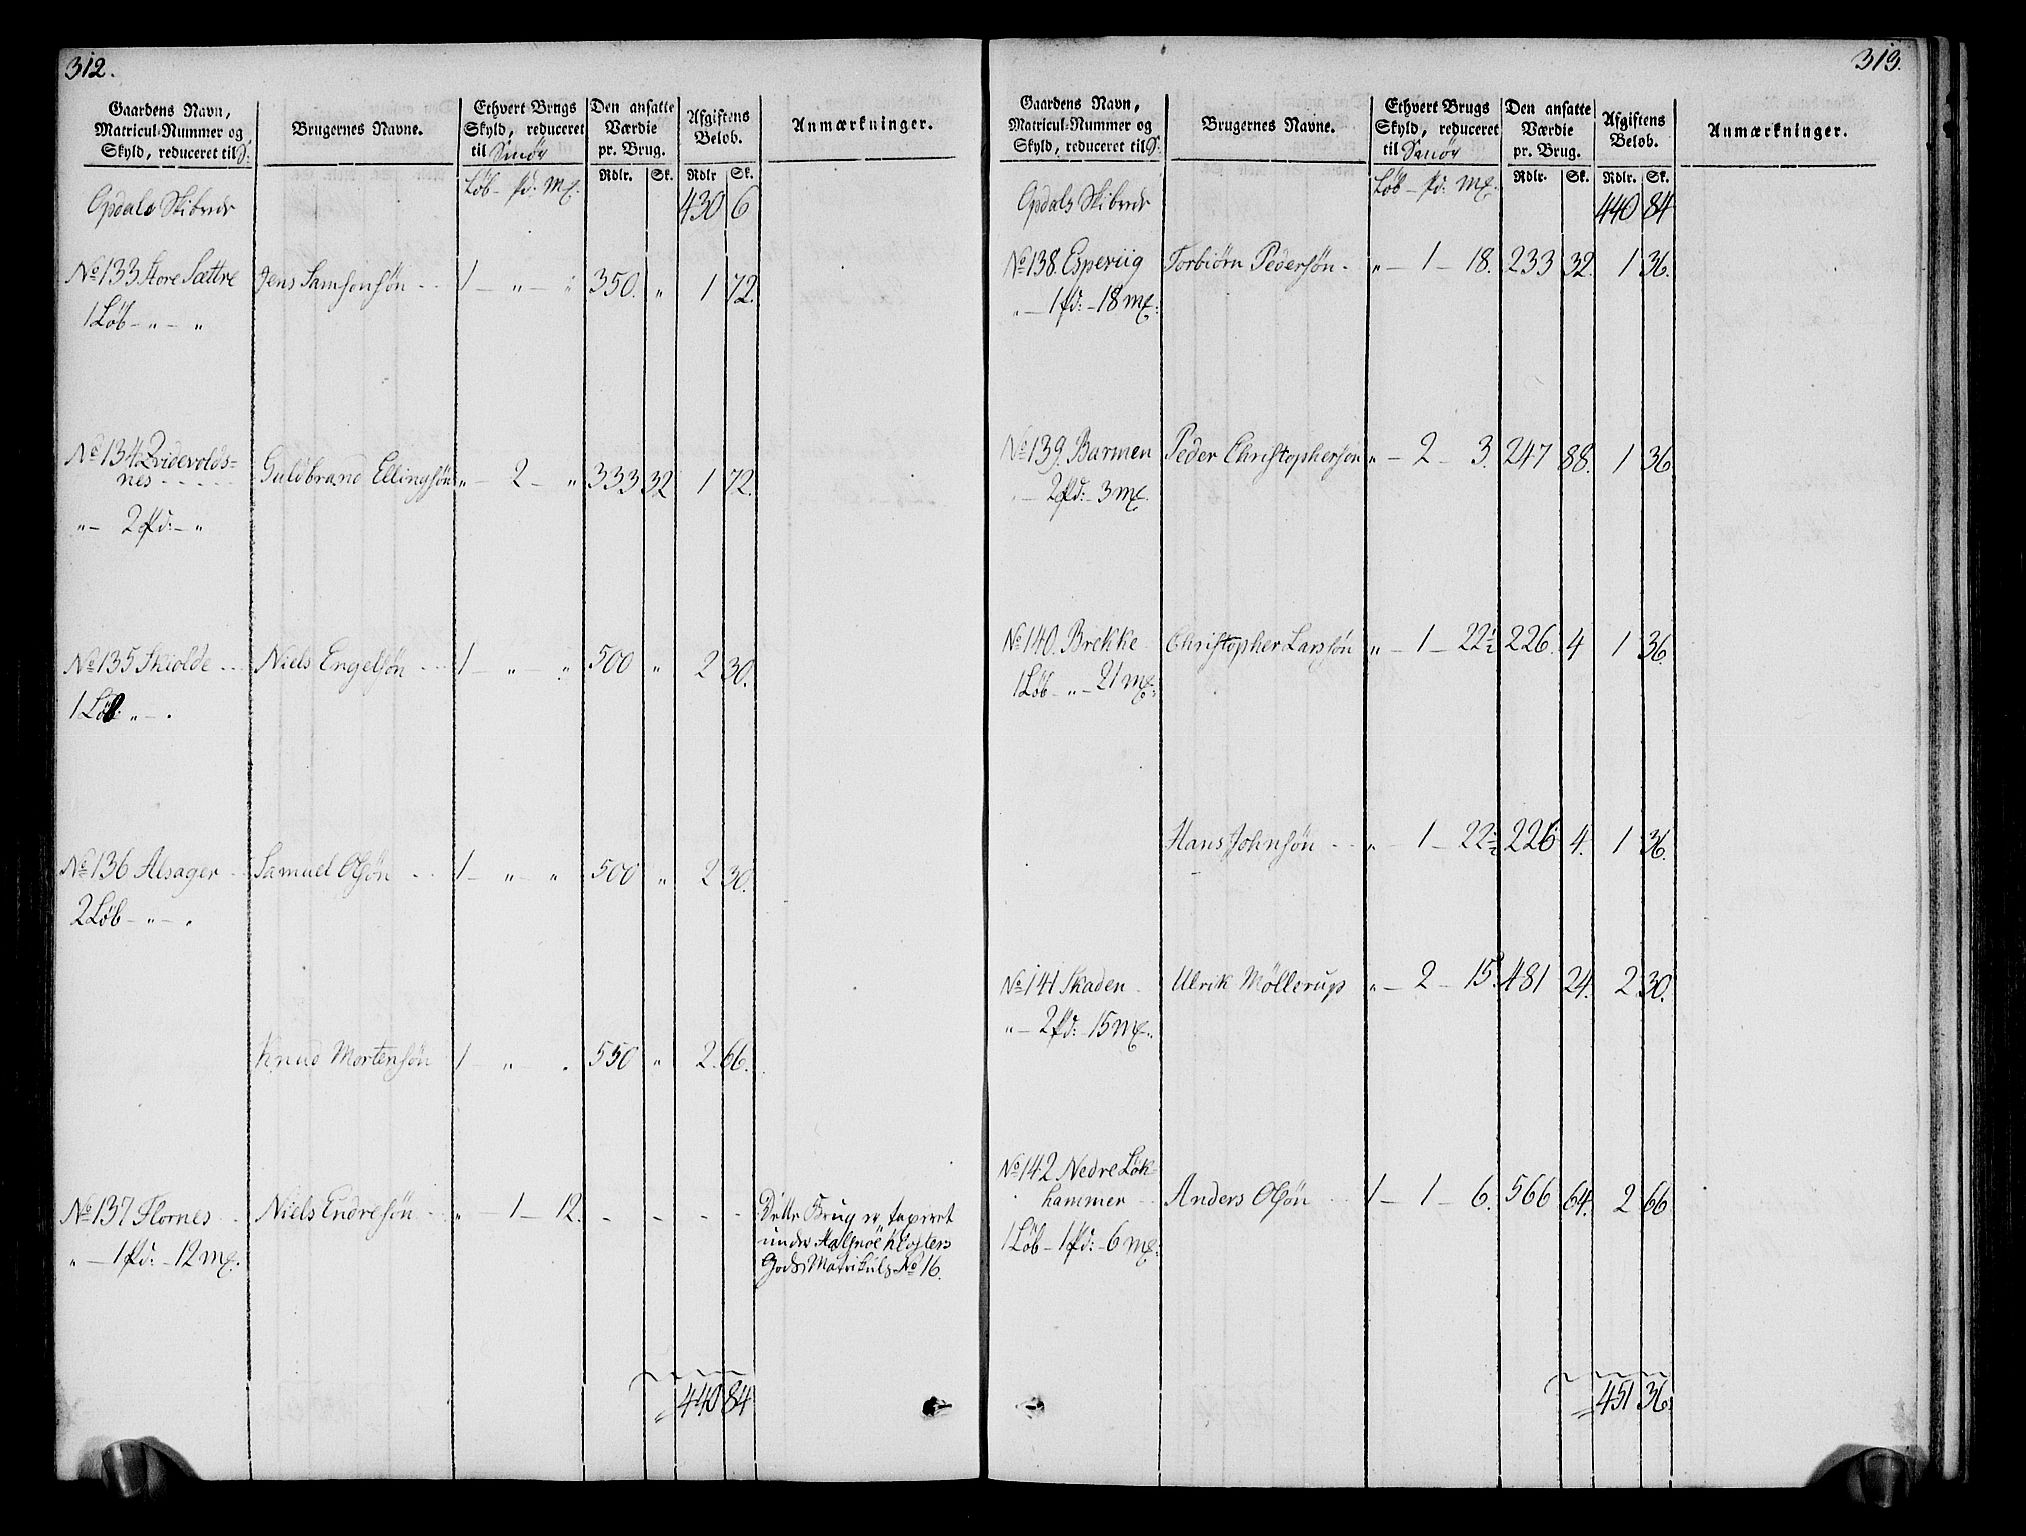 312.
Gaardens Navn, Matricul-Nummer og Skyld, reduceret til S:
Brugernes Navne.
Ethvert Brugs Skyld, reduceret til Smør
Den ansatte Værdie pr. Brug.
Afgiftens Beløb.
Anmærkninger.
Løb - Pd: Mk:
Rdlr. Sk. Rdlr Sk.
Opdals Skibrede 430 6
No 133 Store Sættre Jens Samsonsøn - - 1 - " - " 350. " 1 72.
1 Løb - " - "
No 134 Qvidevoldsnes - - - - - Guldbrand Ellingsøn " - 2 - " 333 32 1 72.
" - 2 Pd: - "
No 135 Skiolde - - - Niels Engelsøn - - - 1 - " - " 500 " 2 30.
1 Løb " - .
No 136 Alsager - - Samuel Olsøn - - 1 - " - " 500 " 2 30.
2 Løb - " - .
Knud Mortensøn 1 - " - . 550 " 2. 66.
No 137 Flornes - - Niels Endresøn - - " - 1 - 12. - - - - Dette Brug er taxeret
under Halsnøe Klosters
Gods Matrikuls No 16.
" - 1 Pd: - 12 Mk.
440 84
313.
Gaardens Navn, Matricul-Nummer og Skyld, reduceret til S:
Brugernes Navne.
Ethvert Brugs Skyld, reduceret til Smør
Den ansatte Værdie pr. Brug.
Afgiftens Beløb.
Anmærkninger.
Løb - Pd: Mk:
Rdlr. Sk. Rdlr. Sk.
Opdals Skibrede 440 84
No 138. Espeviig Torbiørn Pedersøn - " - 1 - 18. 233 32. 1 36.
" - 1 Pd: - 18 Mk:
No 139. Barmen Peder Christophersøn " - 2 - 3. 247 88. 1 36
" - 2 Pd: - 3 Mk.
No 140. Brekke Christopher Larssøn " - 1 - 22½ 226. 4 1 36.
1 Løb - " - 21 Mk:
Hans Johnsøn - - " - 1 - 22½ 226 4. 1 36.
No 141 Skaden - Ulrik Møllerup " - 2 - 15. 481 24. 2 30.
" - 2 Pd: - 15 Mk.
No 142 Nedre Løkhammer - - Anders Olsøn - - 1 - 1 - 6. 566 64. 2 66
1 Løb - 1 Pd: - 6 Mk:
451 36.